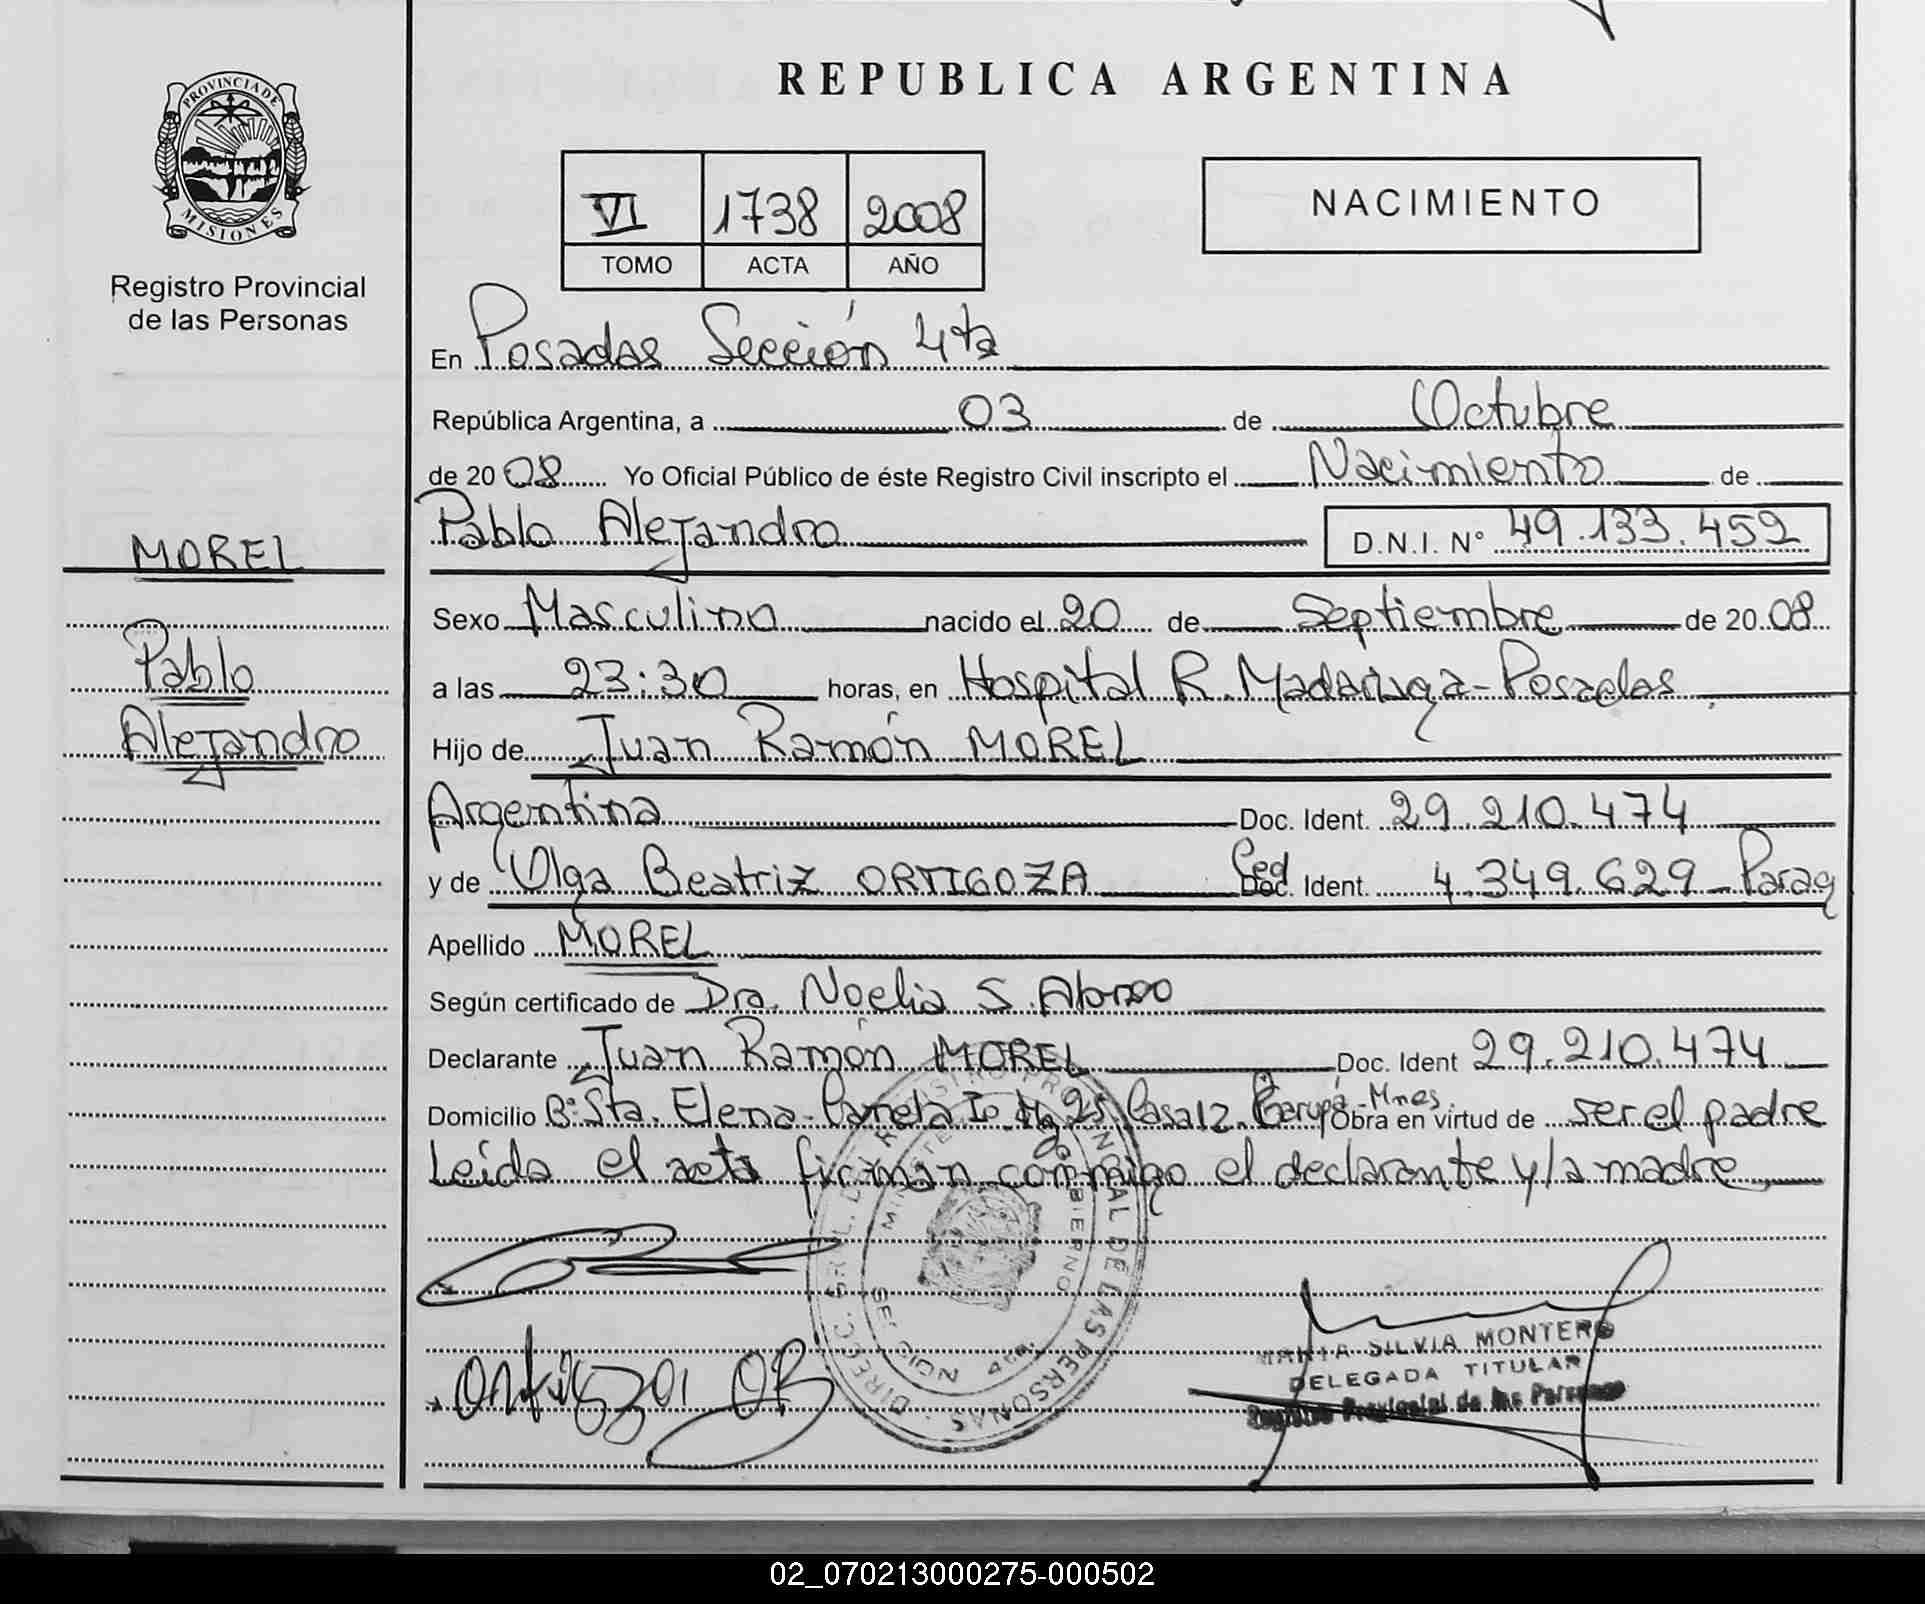 REPUBLICA ARGENTINA
PROVINCIA DE MISIONES
Registro Provincial
de las Personas
VI 1738 2008
TOMO ACTA AÑO
NACIMIENTO
MOREL
Pablo
Alejandro
En Posadas Sección 4ta
República Argentina, a 03 de Octubre
de 2008 Yo Oficial Público de éste Registro Civil inscripto el Nacimiento de
Pablo Alejandro D.N.I. N° 49.133.452
Sexo Masculino nacido el 20 de Septiembre de 2008
a las 23:30 horas, en Hospital R. Madariaga - Posadas
Hijo de Juan Ramón MOREL
Argentina Doc. Ident. 29.210.474
y de Olga Beatriz ORTIGOZA Ced. Ident. 4.349.629 - Parag
Apellido MOREL
Según certificado de Dra. Noelia S. Alonso
Declarante Juan Ramón MOREL Doc. Ident 29.210.474
Domicilio B° Sta. Elena - 25 Casa 12. Garupá - Mnes. Obra en virtud de ser el padre
Leída el acta firman conmigo el declarante y la madre
DIREC. GRAL. DEL REGISTRO PROVINCIAL DE LAS PERSONAS
GOBIERNO
SECCION 4ta.
MARIA SILVIA MONTERO
DELEGADA TITULAR
Registro Provincial de las Personas
02_070213000275-000502